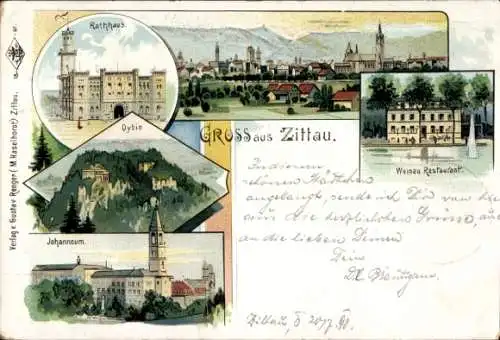 Rathhaus.
Oybin
GRUSS aus Zittau.
Weinau Restaurant.
Johanneum.
Verlag v. Gustav Renger (M. Haselhorst) Zittau.
In diesem
schönen Städtchen
angelangt, sende ich Dir von hier
aus die herzlichsten Grüsse, auch
an die lieben Deinen
Dein
Zittau, d. 20/7 98.